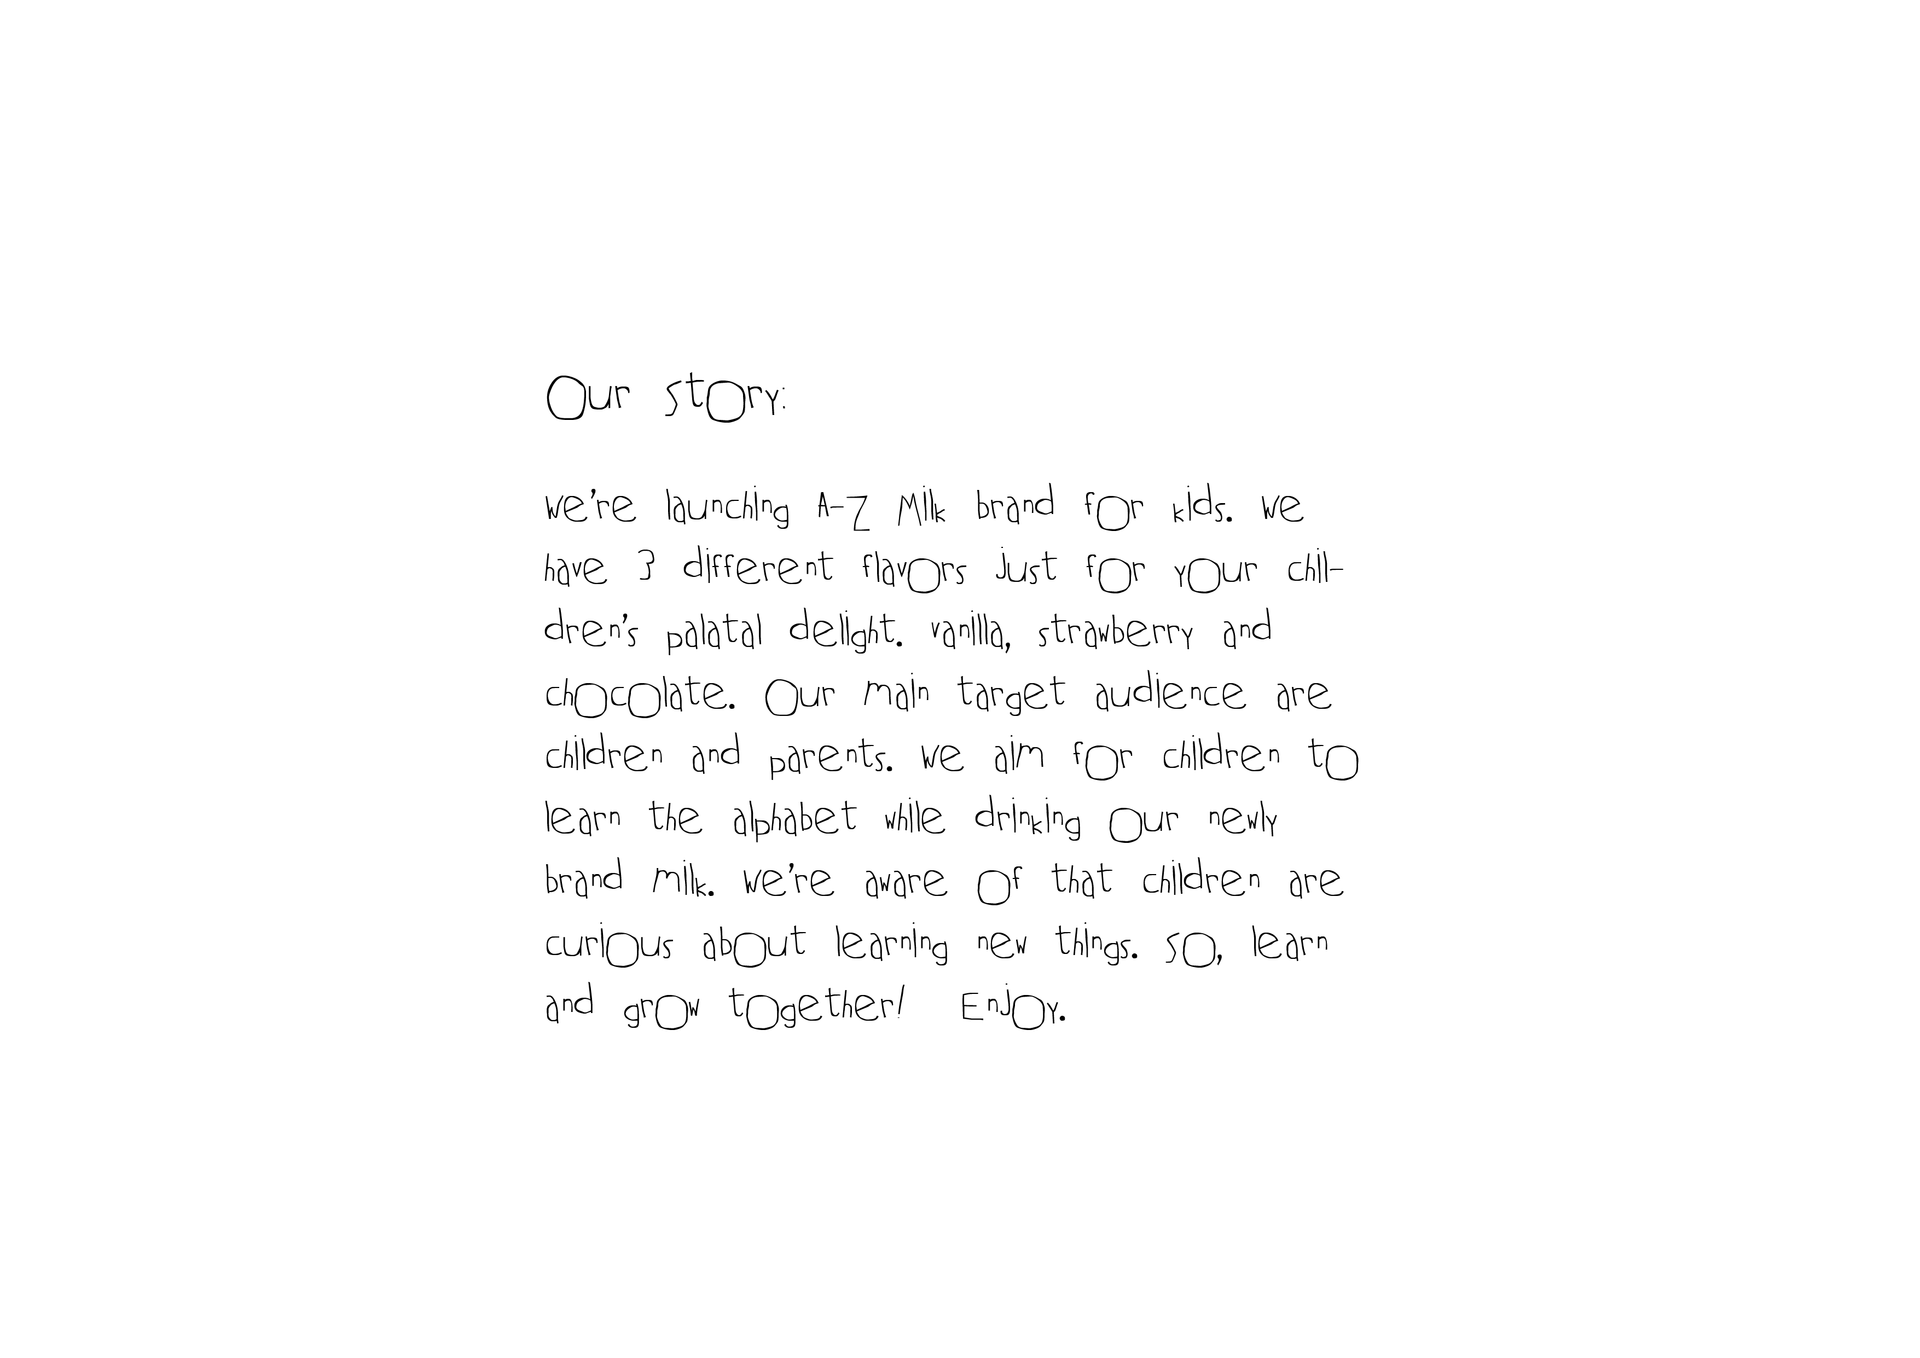 Our story:
we're launching A-Z Milk brand for kids. we
have 3 different flavors just for your chil-
dren's palatal delight. vanilla, strawberry and
chocolate. Our main target audience are
children and parents. we aim for children to
learn the alphabet while drinking our newly
brand milk. we're aware of that children are
curious about learning new things. so, learn
and grow together! Enjoy.